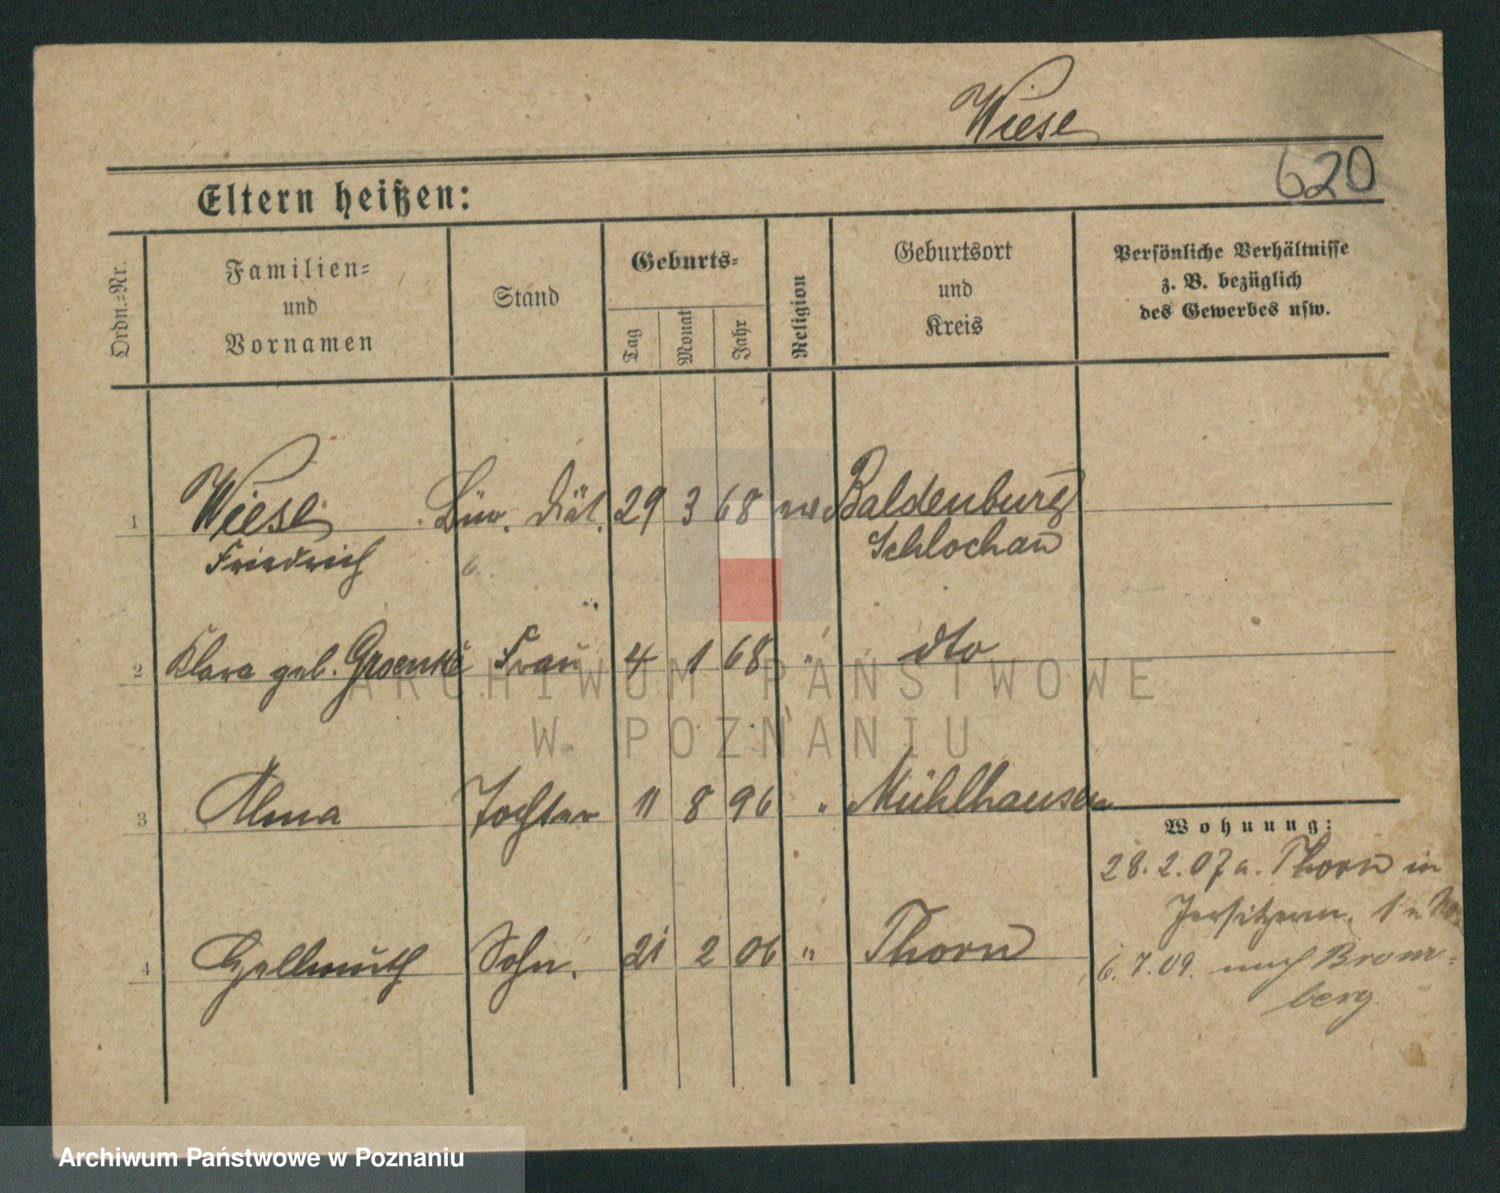 Wiese
620
Eltern heißen:
Ordn.=Nr.
Familien=
und
Vornamen
Stand
Geburts=
Tag
Monat
Jahr
Religion
Geburtsort
und
Kreis
Persönliche Verhältnisse
z. B. bezüglich
des Gewerbes usw.
1 Wiese Bür. Diät. 29 3 68 ev Baldenburg
Friedrich Schlochau
2 Klara geb. Groenke Frau 4 1 68 " dto
ARCHIWUM PAŃSTWOWE
W POZNANIU
3 Alma Tochter 11 8 96 " Mühlhausen
Wohnung:
28.2.07 a. Thorn in
Jersitzerm.
4 Hellmuth Sohn. 21 2 06 " Thorn
6.7.09. nach Brom=
berg.
Archiwum Państwowe w Poznaniu